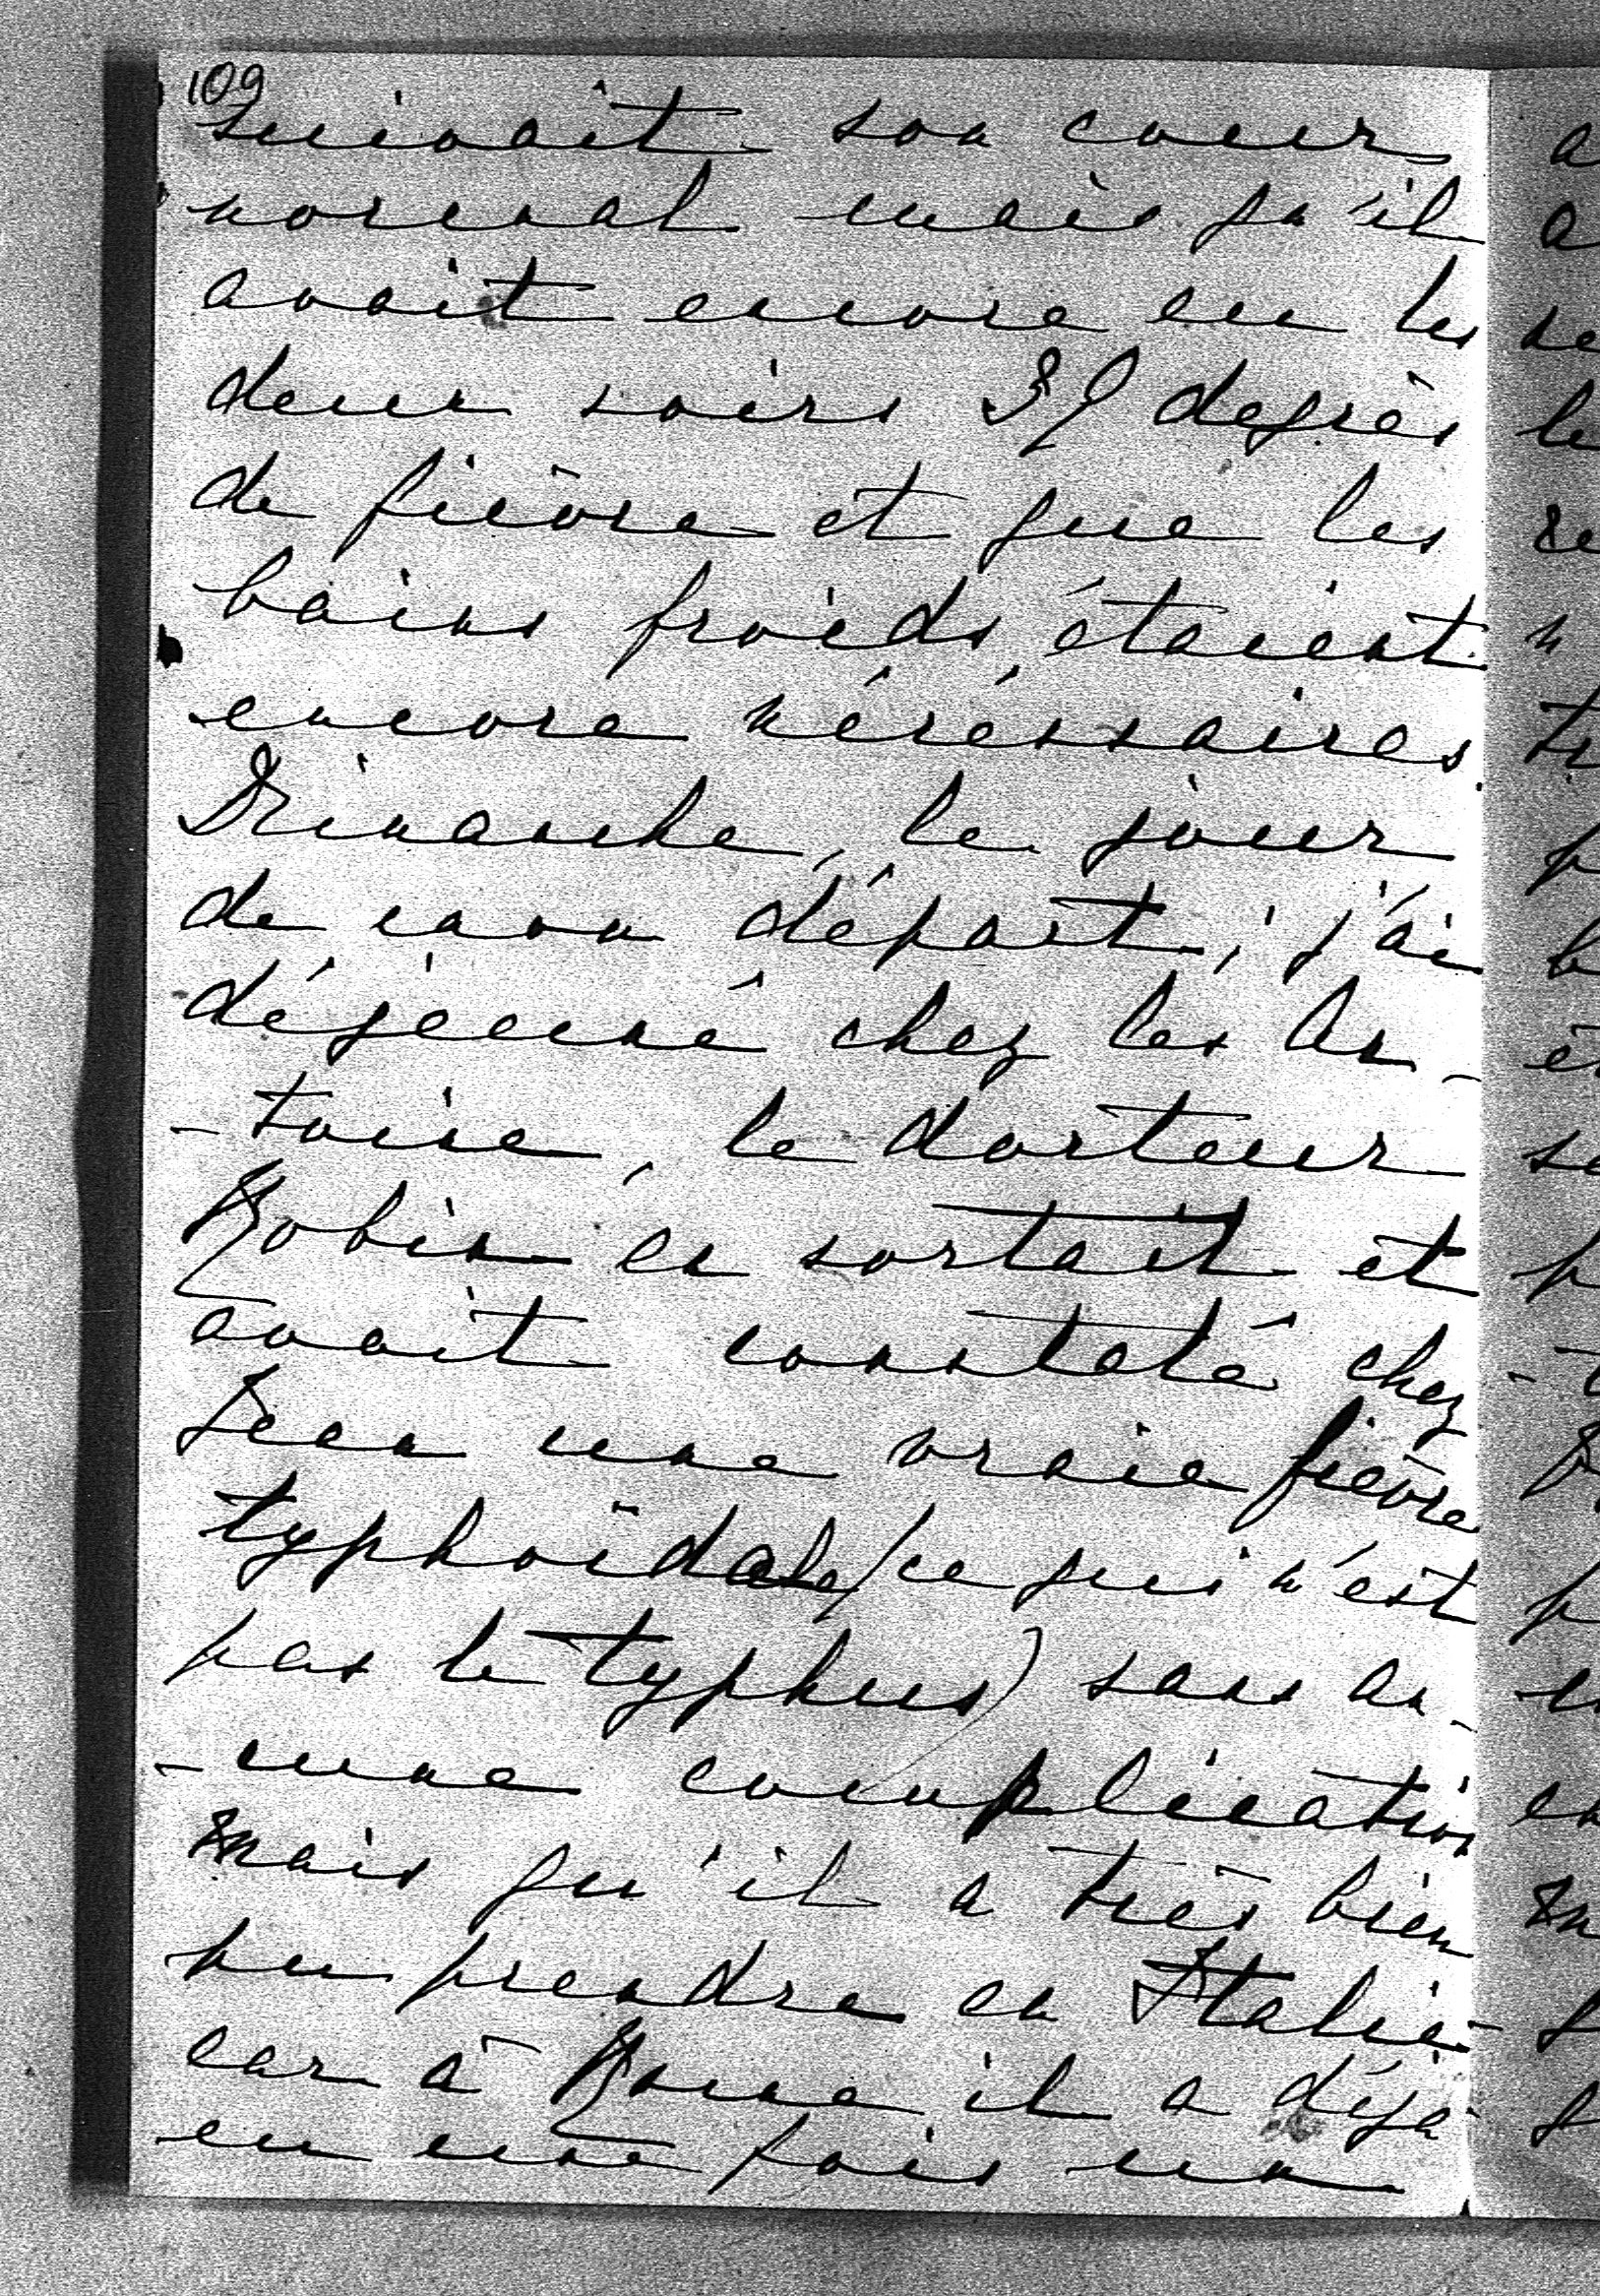 109
suivait son cœur
normal mais qu'il
avait encore eu les
deux soirs 39 degrès
de fièvre et que les
bains froids, étaient
encore nécéssaires.
Dimanche, le jour
de mon départ, j'ai
déjeuné chez les An-
-toine, le docteur
Robin en sortait et
avait constaté chez
Jean une vraie fièvre
typhoïdale (ce qui n'est
pas le typhus) sans au-
-cune complication
mais qu'il a très bien
pu prendre en Italie
car à Rome il a déjà
eu une fois un